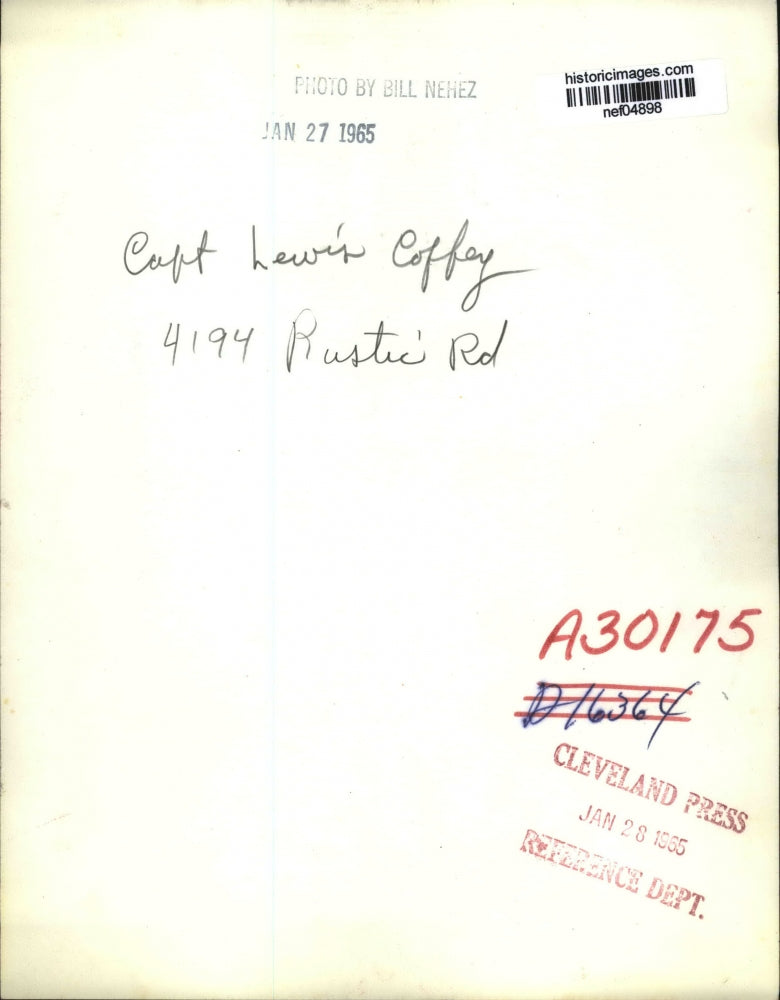 PHOTO BY BILL NEHEZ
historicimages.com
nef04898
JAN 27 1965
Capt Lewis Coffey
4194 Rustic Rd
A30175
D16364
CLEVELAND PRESS
JAN 28 1965
REFERENCE DEPT.